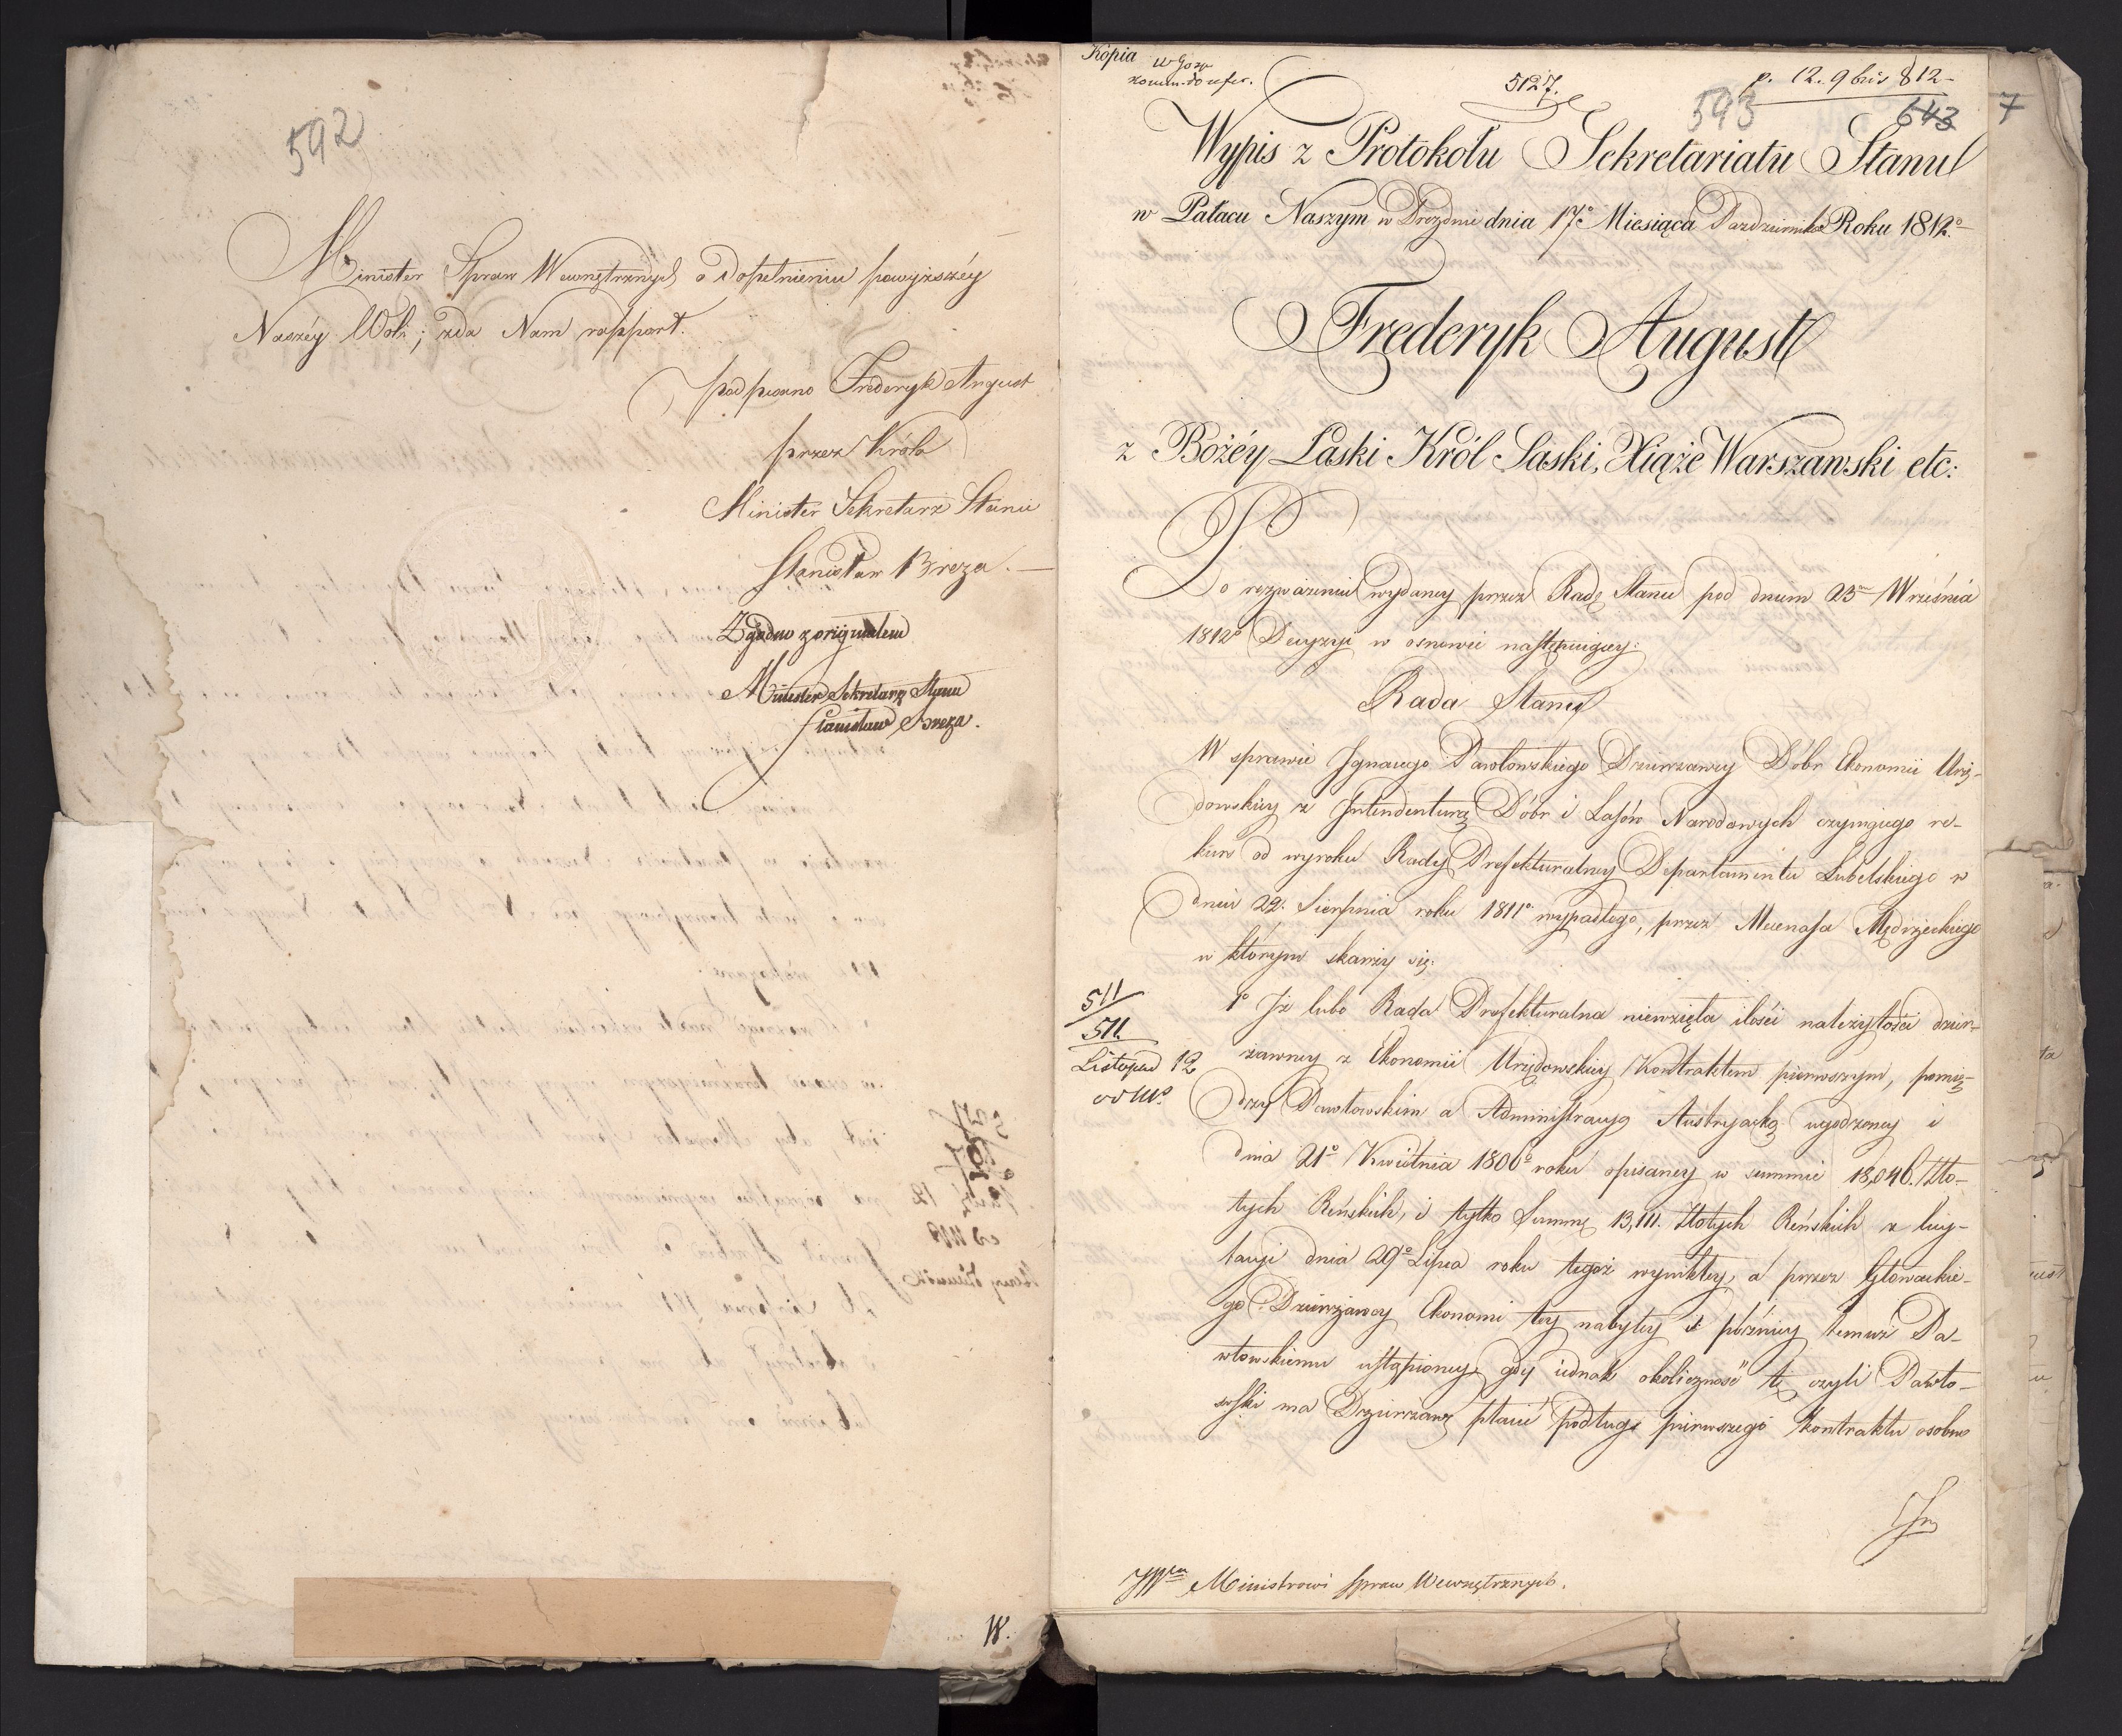 592
Minister Spraw Wewnętrznych o dopełnieniu powyższéy
Naszéy Woli; zda Nam rapport.
podpisano Frederyk August
przez Króla
Minister Sekretarz Stanu
Stanisław Breza.
Zgodno z oryginałem
Minister Sekretarz Stanu
Stanisław Breza.
W.
Kopia
5127.
p. 12. 9bris 812
593
643
7
Wypis z Protokołu Sekretariatu Stanu
w Pałacu Naszym w Dreznie dnia 17º Miesiąca Pazdziernika Roku 1812º
Frederyk August
z Bożéy Łaski Król Saski, Xiąże Warszawski etc:
Po rozważeniu wydaney przez Radę Stanu pod dniem 23m Wrześniá
1812º Decyzyi w osnowie następuiącey:
Rada Stanu
W sprawie Ignacego Pawłowskiego Dzierzawcy Dóbr Ekonomii Urzę-
dowskiey z Intendenturą Dóbr i Lasów Narodowych czyniącego re-
kurs od wyroku Rady Prefekturalney Departamentu Lubelskiego w
dniu 22. Sierpnia roku 1811º wypadłego, przez Mecenasa Mędrzeckiego
w którym skarzy się:
1º Iż lubo Rada Prefekturalna niewzięła ilości należytości dzier-
żawney z Ekonomii Urzędowskiey Kontraktem pierwszym, pomię-
dzy Pawłowskim a Administracyą Austryacką ugodzoney i
dnia 21º Kwietnia 1806º roku opisaney w summie 18,046. Zło-
tych Reńskich, i tylko Summę 13,111. Złotych Reńskich z licy-
tacyi dnia 29º Lipca roku tegoż wynikłey, a przez Głowackie-
go Dzierżawcy Ekonomi tey nabytey i pózniey temuż Pa-
włowskiemu ustąpioney, gdy iednak okoliczność tę czyli Pawło-
wski ma Dzierzawę płacić podług pierwszego kontraktu osobno
511
511.
Listopad 12
JW Ministrowi Spraw Wewnętrznych.